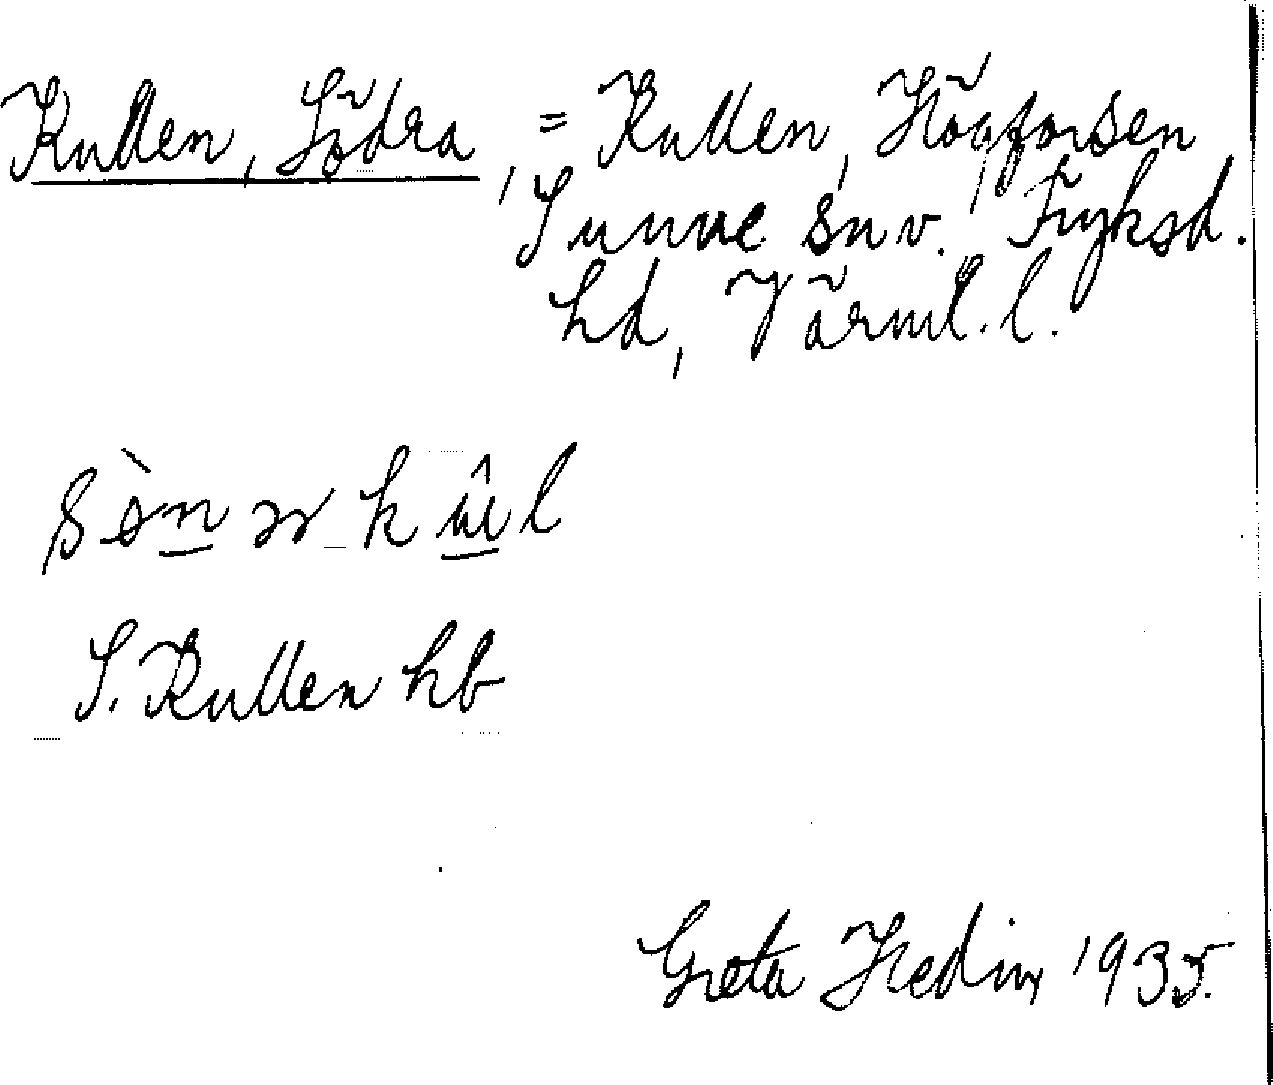 Kullen, Södra, = Kullen, Högforsen,
Sunne snv. Fryksd.
hd, Värml. l.
S. Kullen hb
Greta Hedin 1935.